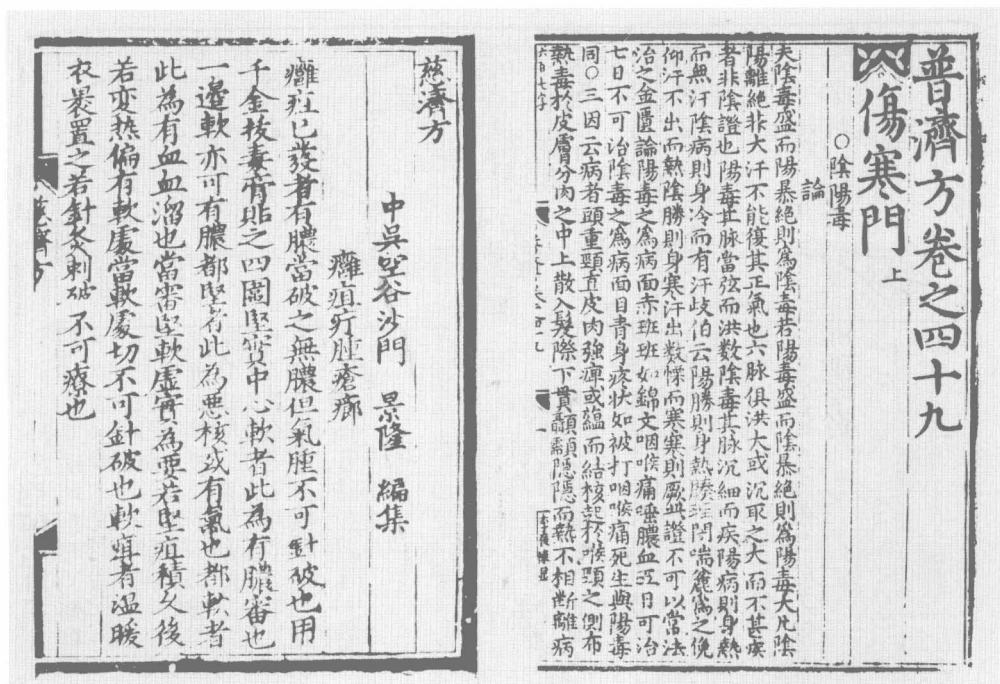 普濟方卷之四十九
傷寒門上
○陰陽毒
論
夫陰毒盛而陽暴絕則為陰毒若陽毒盛而陰暴絕則為陽毒大凡陰
陽離絕非大汗不能復其正氣也六脉俱洪大或沉取之大而不甚疾
者非陰證也陽毒其脉當弦而洪数陰毒其脉沉細而疾陽病則身熱
而無汗陰病則身冷而有汗歧伯云陽勝則身熱腠理閉喘麤為之俛
仰汗不出而熱陰勝則身寒汗出数慄而寒寒則厥此證不可以當法
治之金匱論陽毒之為病面赤班班如錦文咽喉痛唾膿血五日可治
七日不可治陰毒之為病面目青身疼狀如被打咽喉痛死生與陽毒
同○三因云病者頭重頸直皮肉強痺或蘊而結核起於喉頸之側布
熱毒於皮膚分肉之中上散入髮際下貫顳顬隱隱而熱不相斷離病
慈濟方
中吳空谷沙門 景隆 編集
癰疽疔腫瘡癤
癰疽已發者有膿當破之無膿但氣腫不可針破也用
千金拔毒膏貼之四圍堅實中心軟者此為有膿審也
一邊軟亦可有膿都堅者此為惡核或有氣也都軟者
此為有血血溜也當審堅軟虛實為要若堅疽積久後
若变热偏有軟處當軟處切不可針破也軟疽者温暖
衣裹置之若針灸刺破不可療也
慈濟方